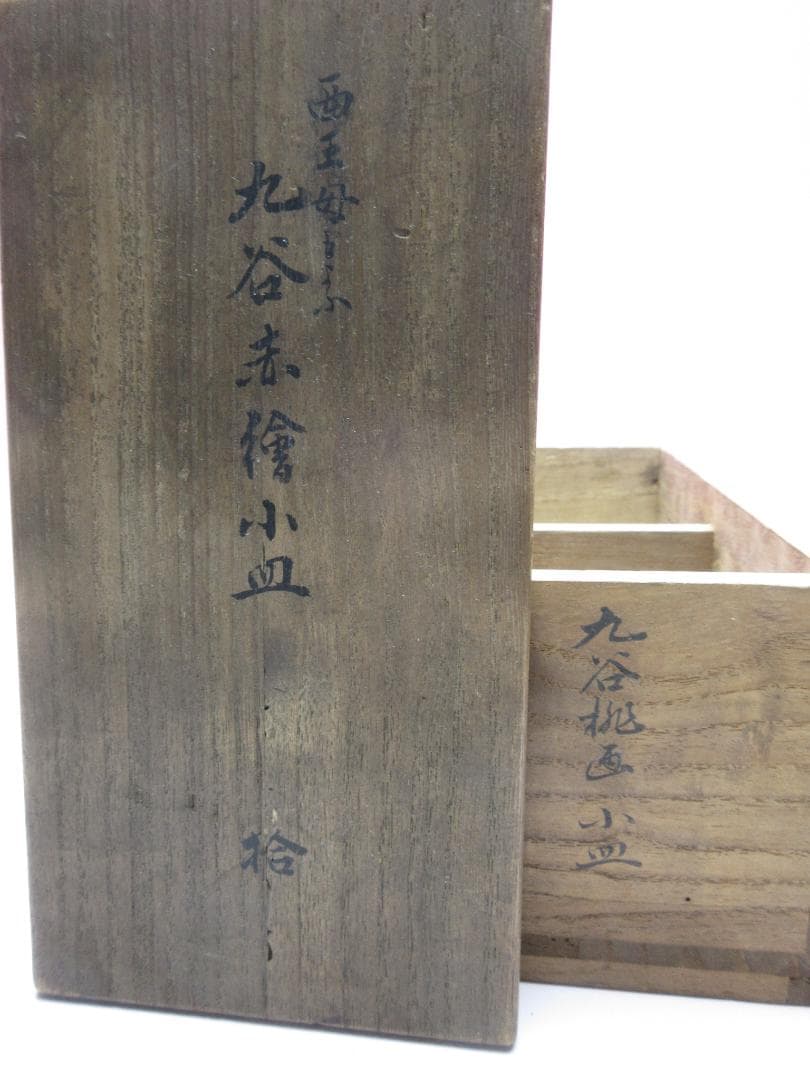 西王母
九谷赤繪小皿
拾
九谷桃画小皿